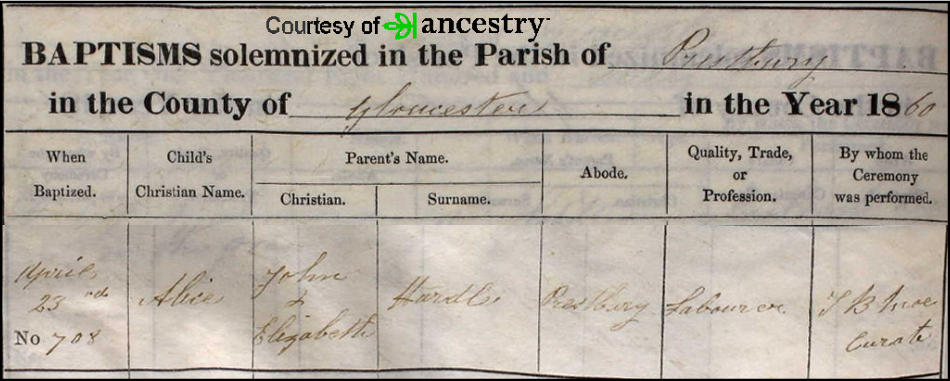 Courtesy of ancestry
BAPTISMS solemnized in the Parish of Prestbury
in the County of Gloucester in the Year 1860
When
Baptized.
Child's
Christian Name.
Parent's Name.
Christian.
Surname.
Abode.
Quality, Trade,
or
Profession.
By whom the
Ceremony
was performed.
April
23rd
No 708
Alice
John
&
Elizabeth
Prestbury
Labourer
J B
Curate